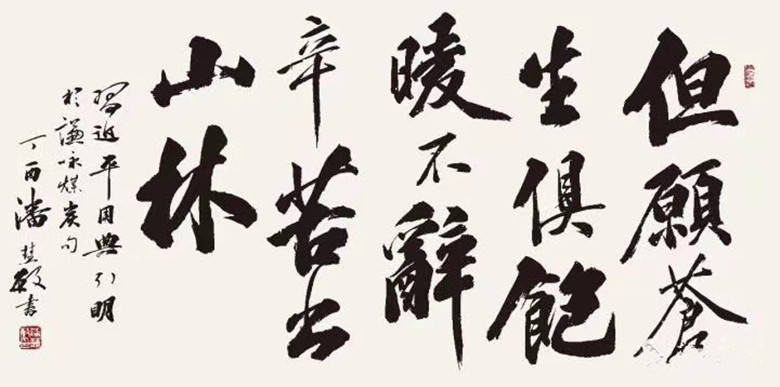 但願蒼
生俱飽
暖不辭
辛苦出
山林
習近平用典引明
於謙咏煤炭句
丁酉潘書